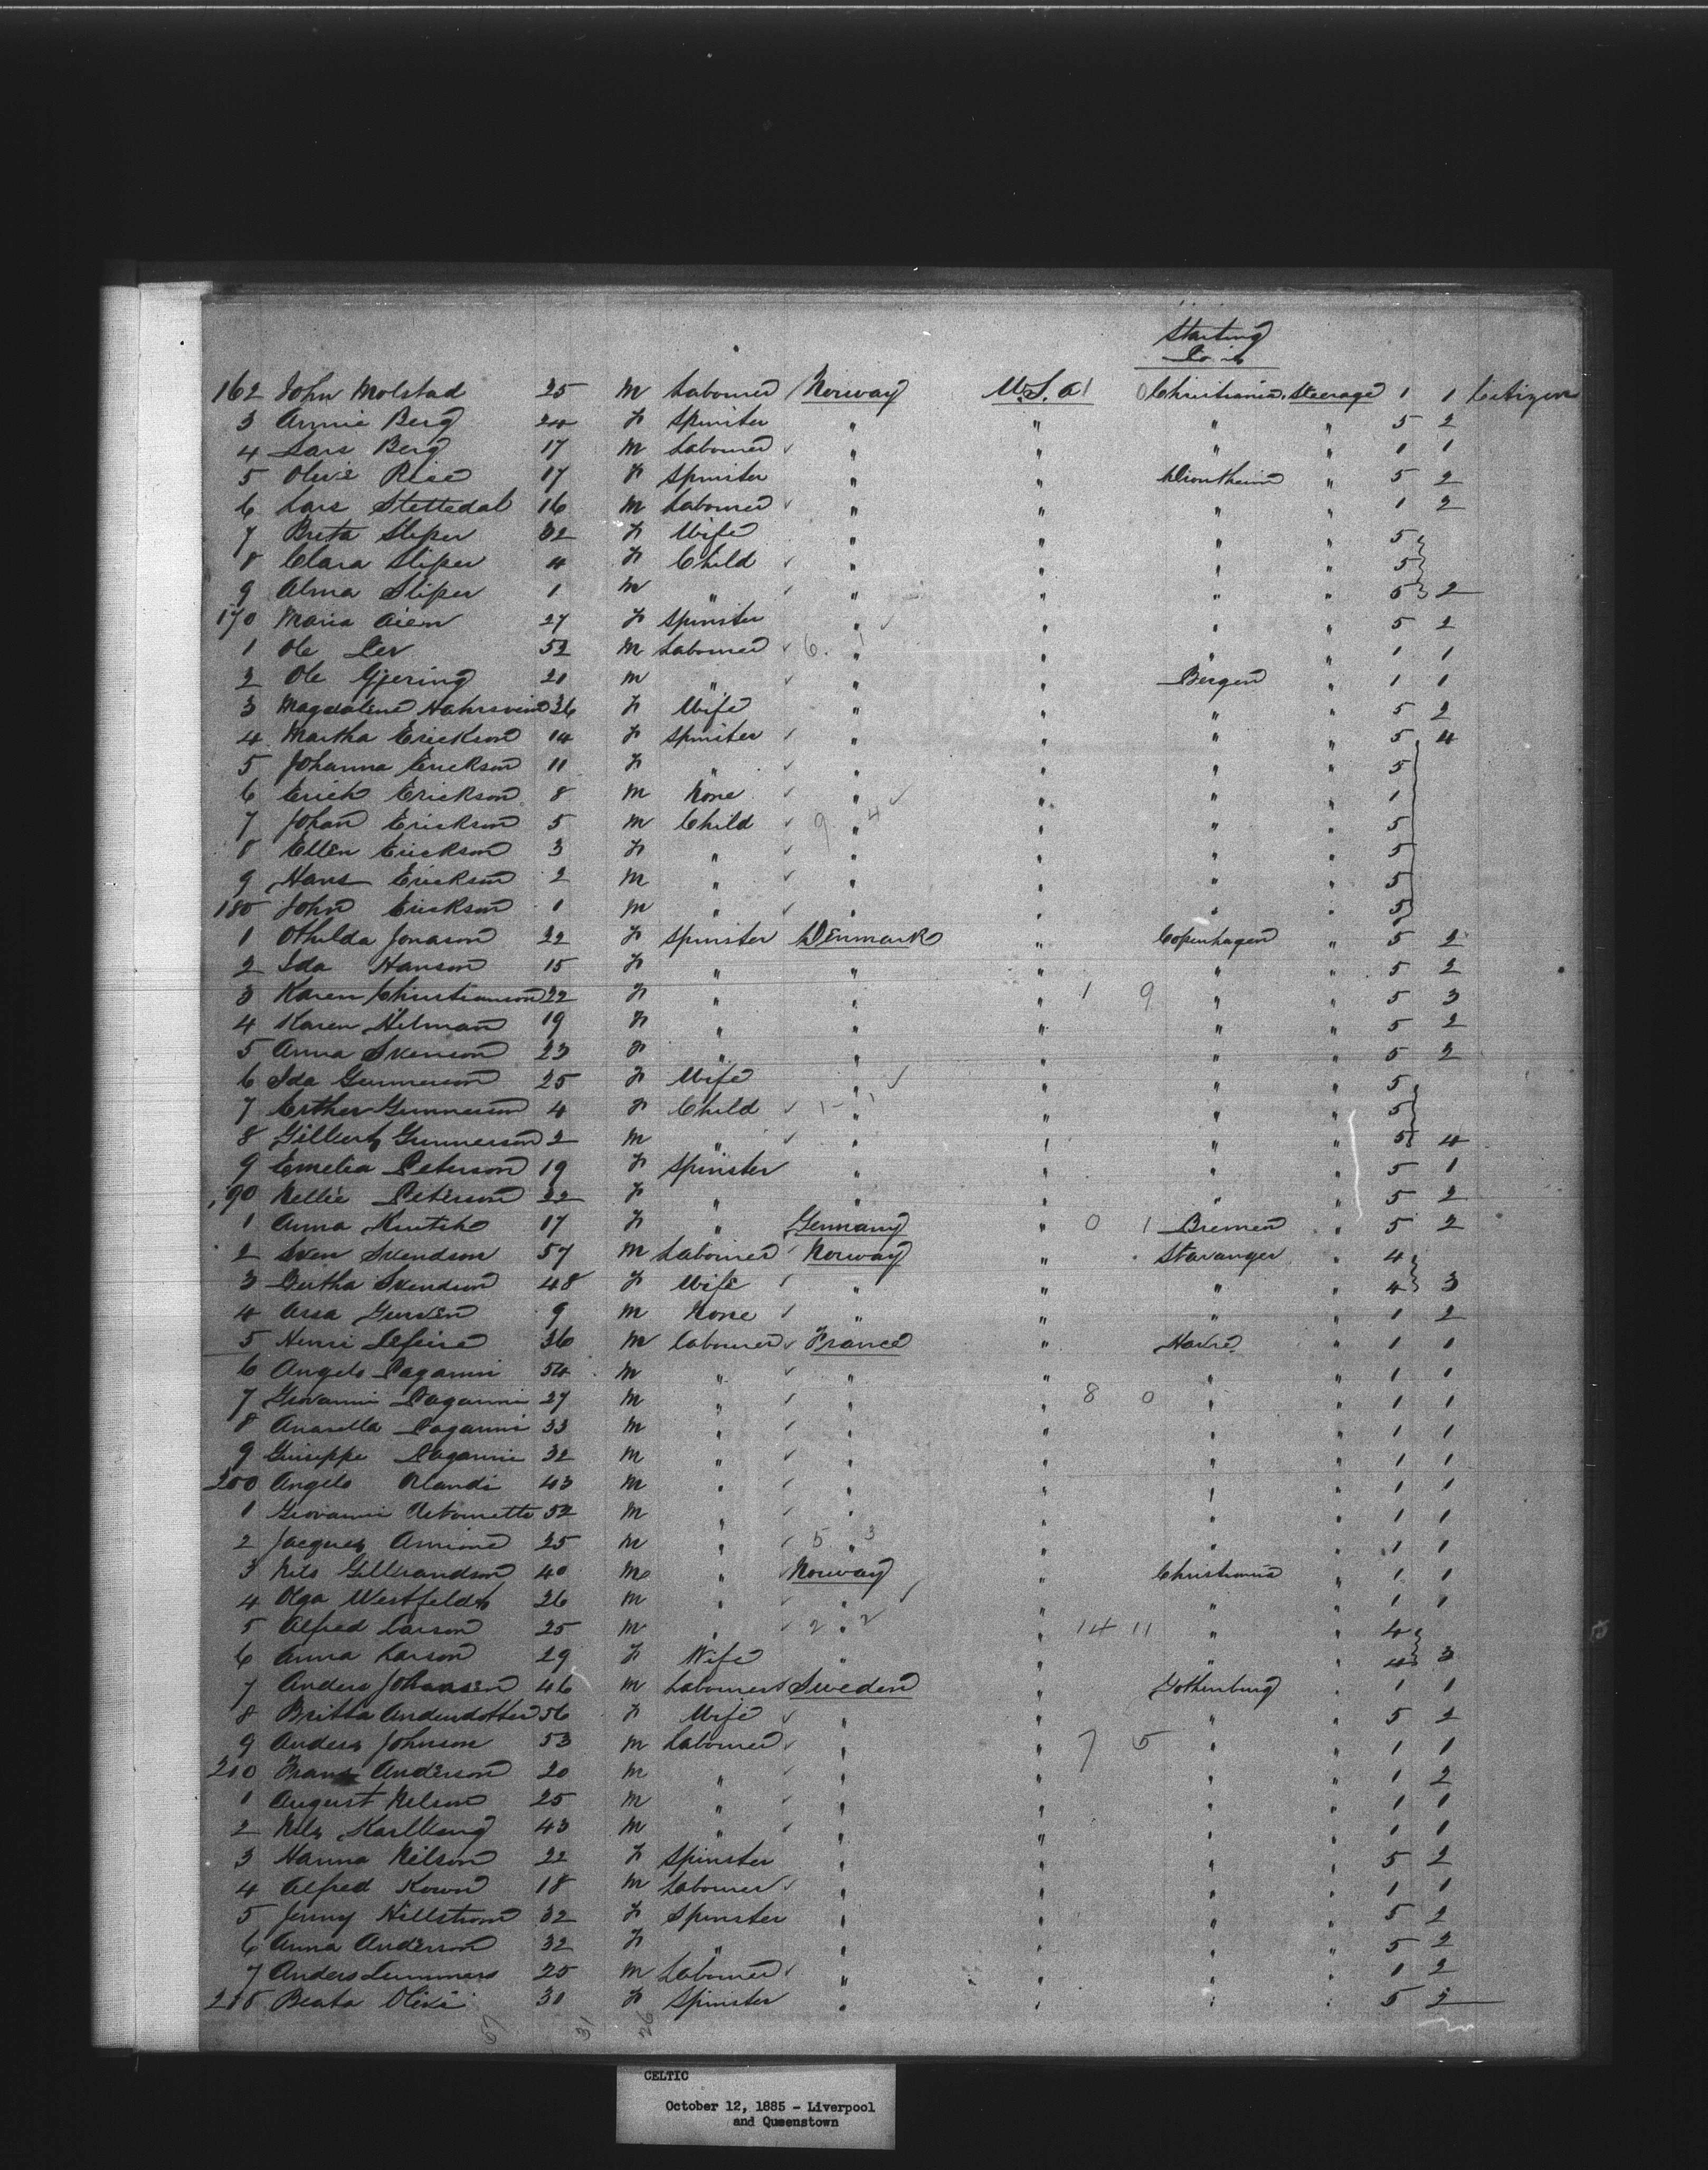 Starting
162 John Molstad 25 M Labourer Norway U.S.A 1 0 Christiania Steerage 1 1 Citizen
3 Annie Berg 24 F Spinster " " " " 5 2
4 Lars Berg 17 M Labourer " " " " 1 1
5 Olive Rise 17 F Spinster " " Drontheim " 5 2
6 Lars Stettedal 16 M Labourer " " " " 1 2
7 Brita Sliper 32 F Wife " " " " 5
8 Clara Sliper 4 F Child " " " " 5
9 Alma Sliper 1 M " " " " " 5 2
170 Maria Aien 27 F Spinster " " " " 5 2
1 Ole 52 M Labourer 6 " 1 " " " 1 1
2 Ole Gjering 21 M " " " Bergen " 1 1
3 Magdalene 36 F Wife " " " " 5 2
4 Martha Erickson 14 F Spinster " " " " 5 4
5 Johanna Erickson 11 F " " " " " 5
6 Erich Erickson 8 M None " " " " 1
7 Johan Erickson 5 M Child 9 " 4 " " " 5
8 Ellen Erickson 3 F " " " " " 5
9 Hans Erickson 2 M " " " " " 5
180 John Erickson 1 M " " " " " 5
1 Othilda Jonason 22 F Spinster Denmark " Copenhagen " 5 2
2 Ida Hanson 15 F " " " " " 5 2
3 Karen Christianson 22 F " " " 1 9 " " 5 3
4 Karen Hilman 19 F " " " " " 5 2
5 Anna Svenson 23 F " " " " " 5 2
6 Ida Gunnerson 25 F Wife " " " " 5
7 Esther Gunnerson 4 F Child 1 - " 1 " " " 5
8 Gilbert Gunnerson 2 M " " " " " 5 4
9 Emelia Peterson 19 F Spinster " " " " 5 1
190 Nellie Peterson 22 F " " " " " 5 2
1 Anna 17 F " Germany " 0 1 Bremen " 5 2
2 Sven Svendson 57 M Labourer Norway " Stavanger " 4
3 Bertha Svendson 48 F Wife " " " " 4 3
4 Assa 9 M None " " " " 1 2
5 Henri Lefeire 36 M Labourer France " Havre " 1 1
6 Angelo Paganini 54 M " " " " " 1 1
7 Giovanni Paganini 27 M " " " 8 0 " " 1 1
8 Paganini 33 M " " " " " 1 1
9 Guiseppe Paganini 32 M " " " " " 1 1
200 Angelo Orlandi 43 M " " " " " 1 1
1 Giovanni 52 M " " " " " 1 1
2 Jacques 25 M " 5 " 3 " " " 1 1
3 Nils Gilbrandson 40 M " Norway " Christiania " 1 1
4 Olga Westfeldt 26 M " " " " " 1 1
5 Alfred Larson 25 M " 2 " 2 " 14 11 " " 4
6 Anna Larson 29 F Wife " " " " 4 3
7 Anders Johansen 46 M Labourer Sweden " Gothenburg " 1 1
8 Britta Andersdotter 56 F Wife " " " " 5 2
9 Anders Johnson 53 M Labourer " " 7 5 " " 1 1
210 Frans Anderson 20 M " " " " " 1 2
1 August Nelson 25 M " " " " " 1 1
2 Nils Karlberg 43 M " " " " " 1 1
3 Hanna Nilson 22 F Spinster " " " " 5 2
4 Alfred 18 M Labourer " " " " 1 1
5 Jenny Hillstrom 32 F Spinster " " " " 5 2
6 Anna Anderson 32 F " " " " " 5 2
7 Anders 25 M Labourer " " " " 1 2
218 Beata 31 F Spinster " " " " 5 2
31 26
CELTIC
October 12, 1885 - Liverpool
and Queenstown